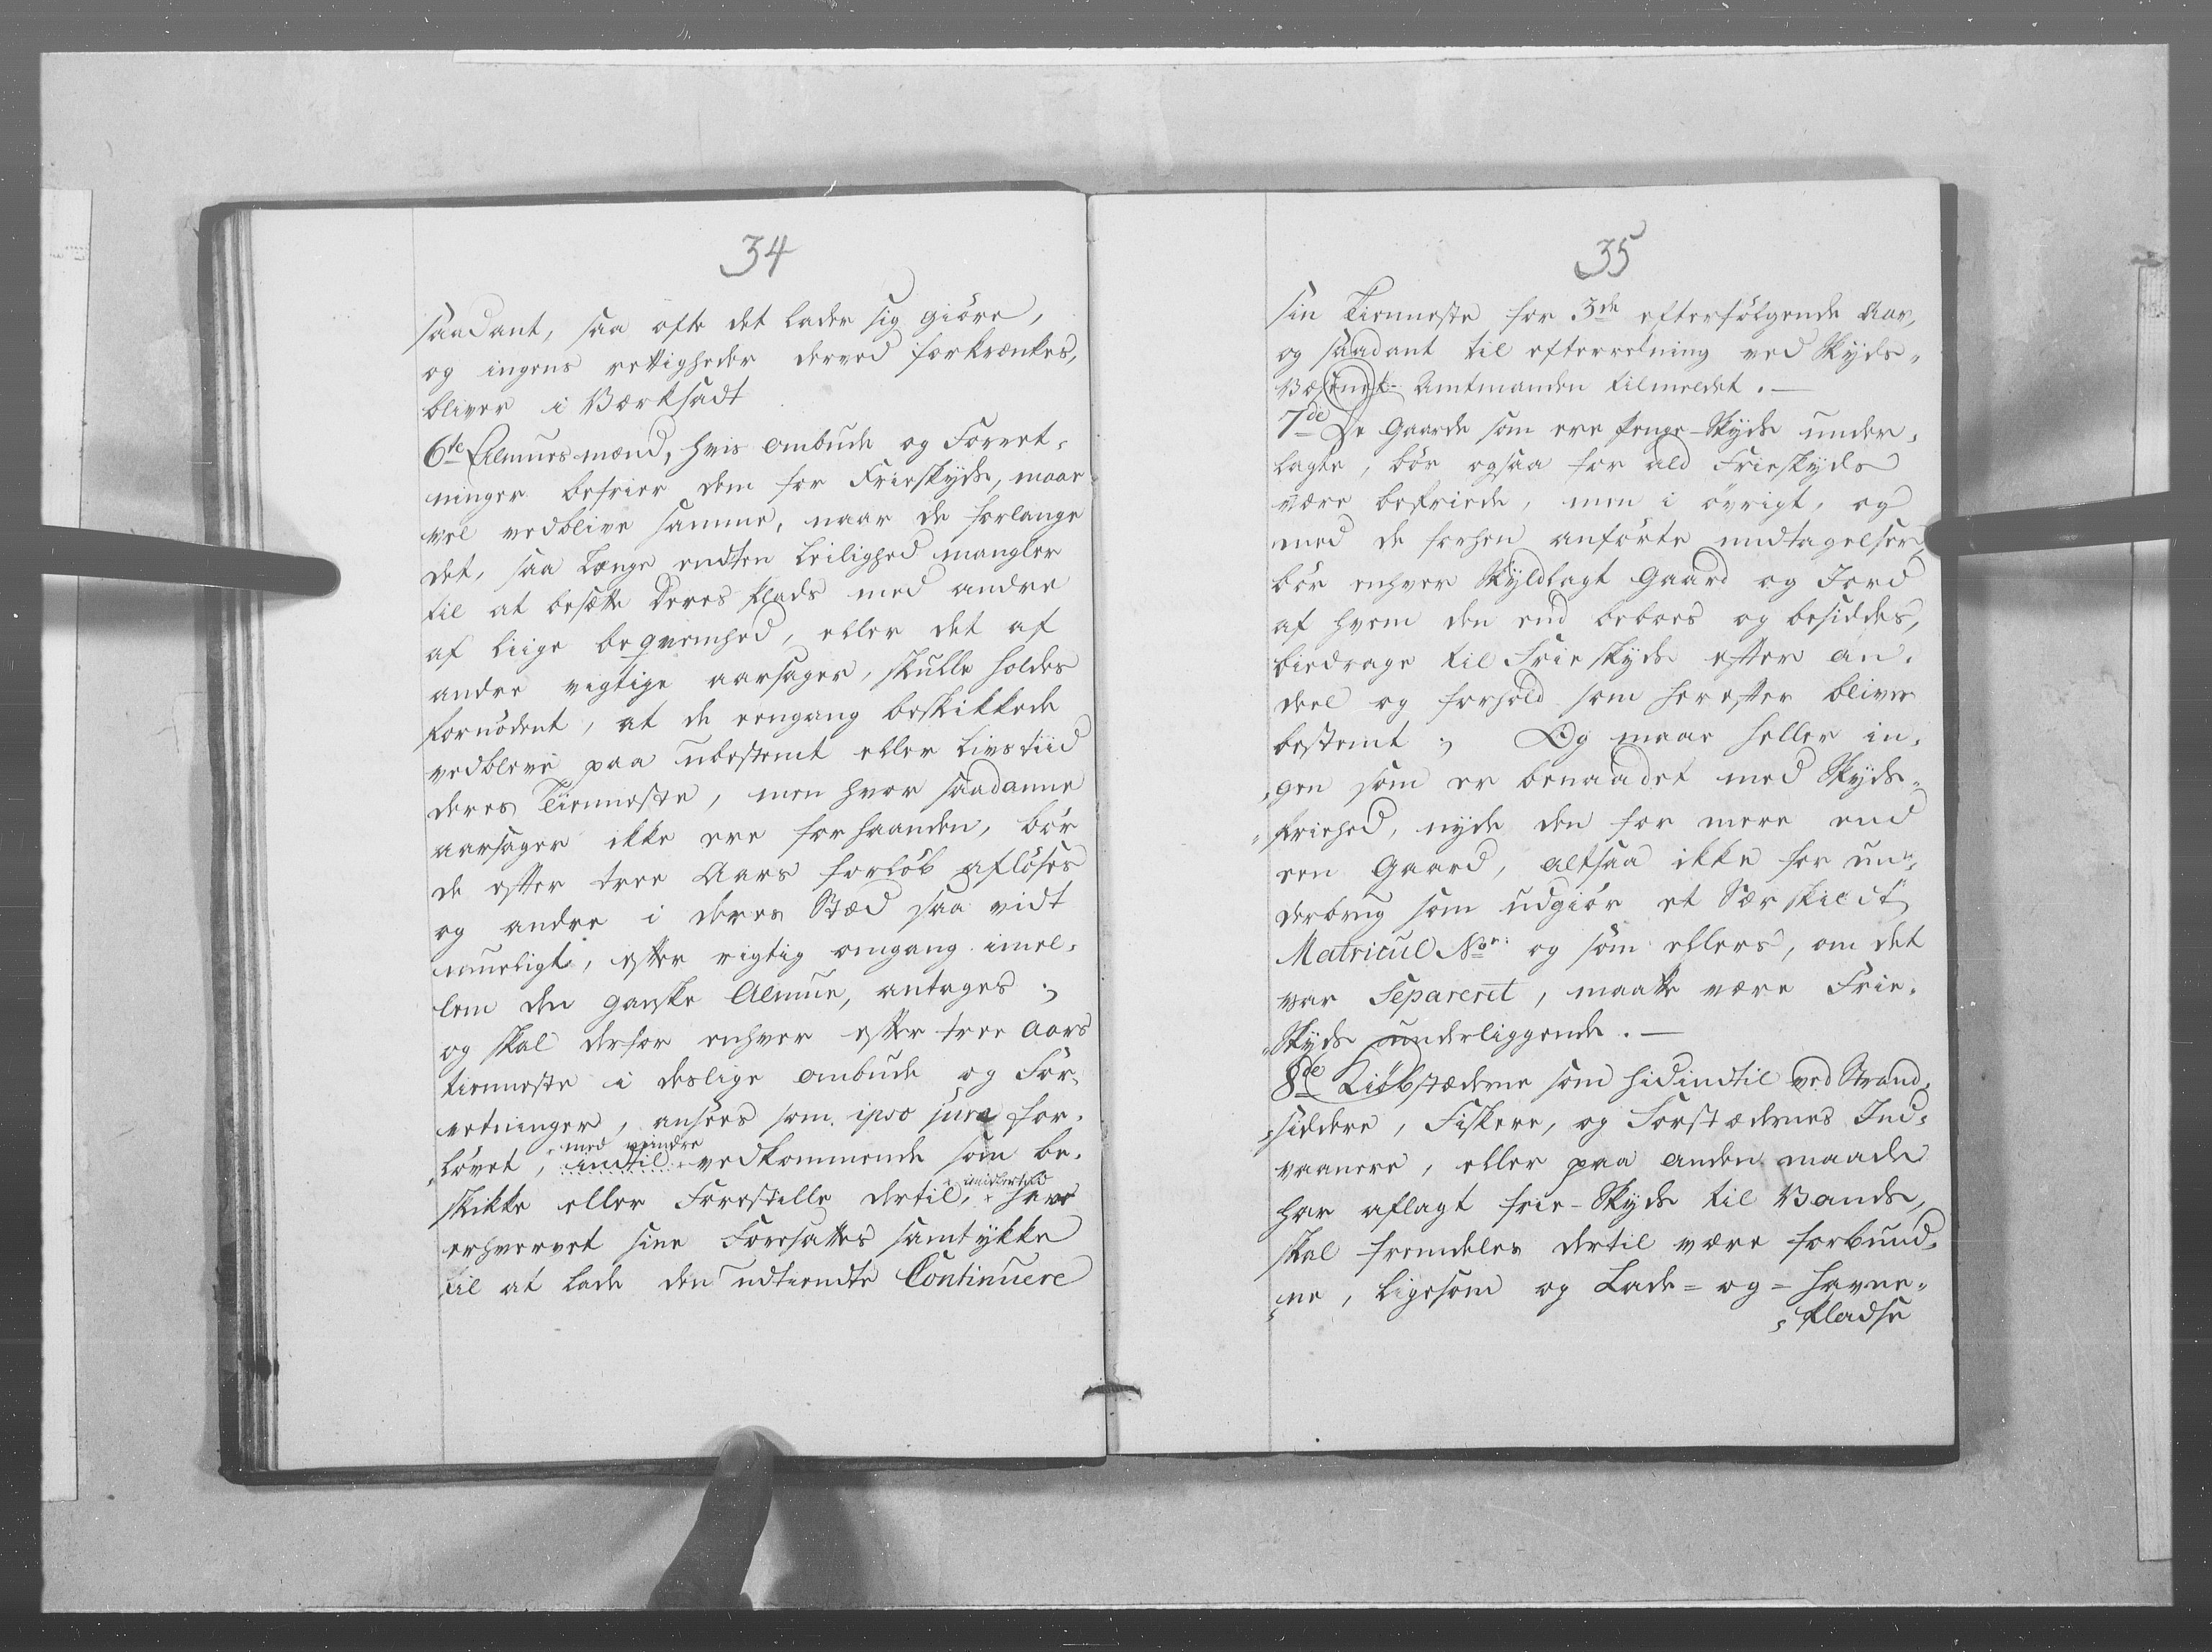 34
saadant, saa ofte det lader sig giöre,
og ingens rettigheder derved forkrænkes,
bliver i Værksadt
6te Almuesmænd, hvis ombude og Forret,
ninger befrier dem for Frieskyds, maae
vel vedblive samme, naar de forlange
det, saa længe endten leilighed mangler
til at besætte deres plads med andre
af liige beqvemhed, eller det af
andre vigtige aarsager, skulle holdes
fornödent, at de eengang beskikkede
vedbleve paa ubestemt eller livstiid
deres Tienneste, men hvor saadanne
aarsager ikke ere forhaanden, bör
de efter tree Aars forlöb aflöses
og andre i deres Stæd saa vidt
mueligt, efter rigtig omgang imel,
lem den ganske Almue, antages ;
og skal derfor enhver efter tree Aars
tienneste i deslige ombude og For,
retninger, ansees som ipso jure for,
med mindre
lövet, indtil vedkommende som be,
imidlertid
skikke eller Forestille dertil, have
erhvervet sine Foresattes samtykke
til at lade den udtiendte Continuere
35
sin Tienneste for 3de efterfölgende Aar,
og saadant til efterretning ved Skyds,
Væsenet Amtmanden tilmeldet. —
7de De Gaarde som ere penge-Skyds under,
lagte, bör ogsaa for ald Frieskyds
være befriede, men i övrigt, og
med de forhen anförte undtagelser,
bör enhver Skyldlagt Gaard og Jord
af hvem den end beboes og besiddes,
biedrage til Frieskyds efter an,
deel og forhold som herefter bliver
bestemt ; Og maae heller in,
gen som er benaadet med Skyds,
friehed, nyde den for mere end
een Gaard, altsaa ikke for un,
derbrug som udgiör et Særskildt
Matricul No: og som ellers, om det
var Separeret, maatte være Frie,
Skyds underliggende. —
8de Kiöbstæderne som hidindtil ved Strand,
siddere, Fiskere, og Forstædernes Ind,
vaanere, eller paa anden maade
har aflagt frie-Skyds til Vands,
skal fremdeles dertil være forbund,
ne, ligesom og Lade = og = havne,
pladse